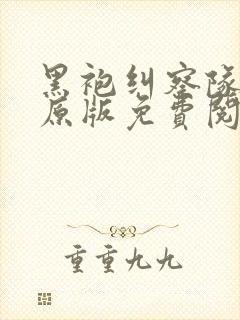 黑袍纠察队
原版免費閱
重重九九